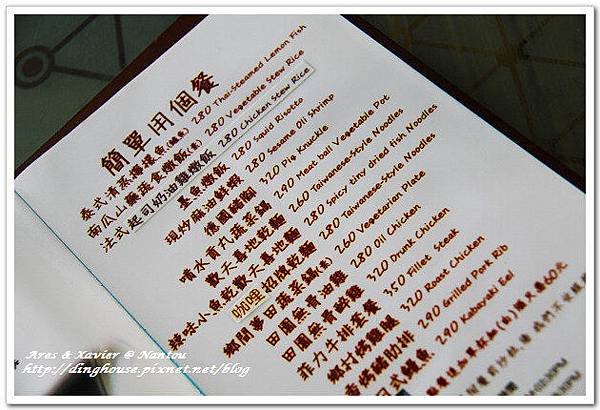 簡單用個餐
泰式清蒸檸檬魚(鱸魚) 280 Thai-Steamed Lemon Fish
南瓜山藥蔬食燉飯(素) 280 Vegetable Stew Rice
法式起司奶油雞燉飯 280 Chicken Stew Rice
墨魚燉飯 280 Squid Risotto
現炒麻油鮮蝦 280 Sesame Oil Shrimp
德國豬腳 320 Pig Knuckle
噴水貢丸蔬菜鍋 290 Meat ball Vegetable Pot
歡天喜地乾麵 260 Taiwanese-Style Noodles
辣味小魚乾歡天喜地麵 280 Spicy tiny dried fish Noodles
咖哩招牌乾麵 280 Taiwanese-Style Noodles
鄉間夢田蔬菜鍋(素) 260 Vegetarian Plate
田園無骨油雞 280 Oil Chicken
田園無骨醉雞 320 Drunk Chicken
菲力牛排套餐 350 Fillet Steak
鄉村烤雞腿 320 Roast Chicken
香烤豬肋排 290 Grilled Pork Rib
日式鰻魚 290 Kabayati Eel
Ares & Xavier @ Nantou
http://dinghouse.pixnet.net/blog